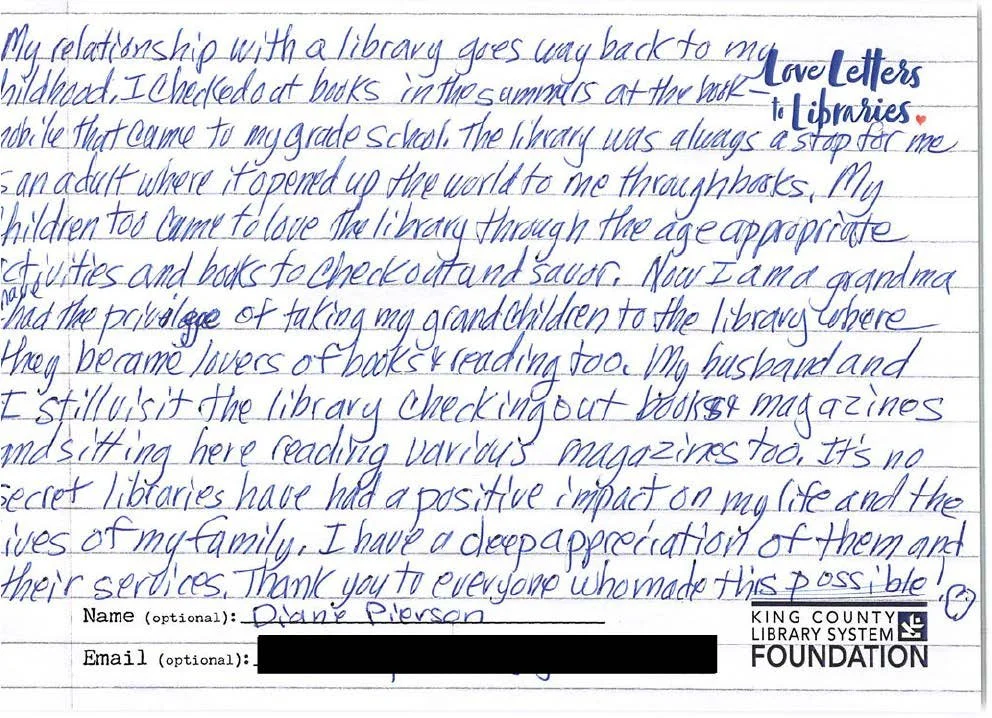 My relationship with a library goes way back to my
Love Letters
to Libraries.
hildhood. I checked out books in the summers at the book-
obile that came to my grade school. The library was always a stop for me
s an adult where it opened up the world to me through books. My
hildren too came to love the library through the age appropriate
ctivities and books to check out and savor. Now I am a grandma
have
had the privilege of taking my grandchildren to the library where
they became lovers of books & reading too. My husband and
I still visit the library checking out books & magazines
and sitting here reading various magazines too. It's no
secret libraries have had a positive impact on my life and the
ives of my family. I have a deep appreciation of them and
their services. Thank you to everyone who made this possible!
Name (optional): Diane Pierson
Email (optional):
KING COUNTY
LIBRARY SYSTEM
FOUNDATION